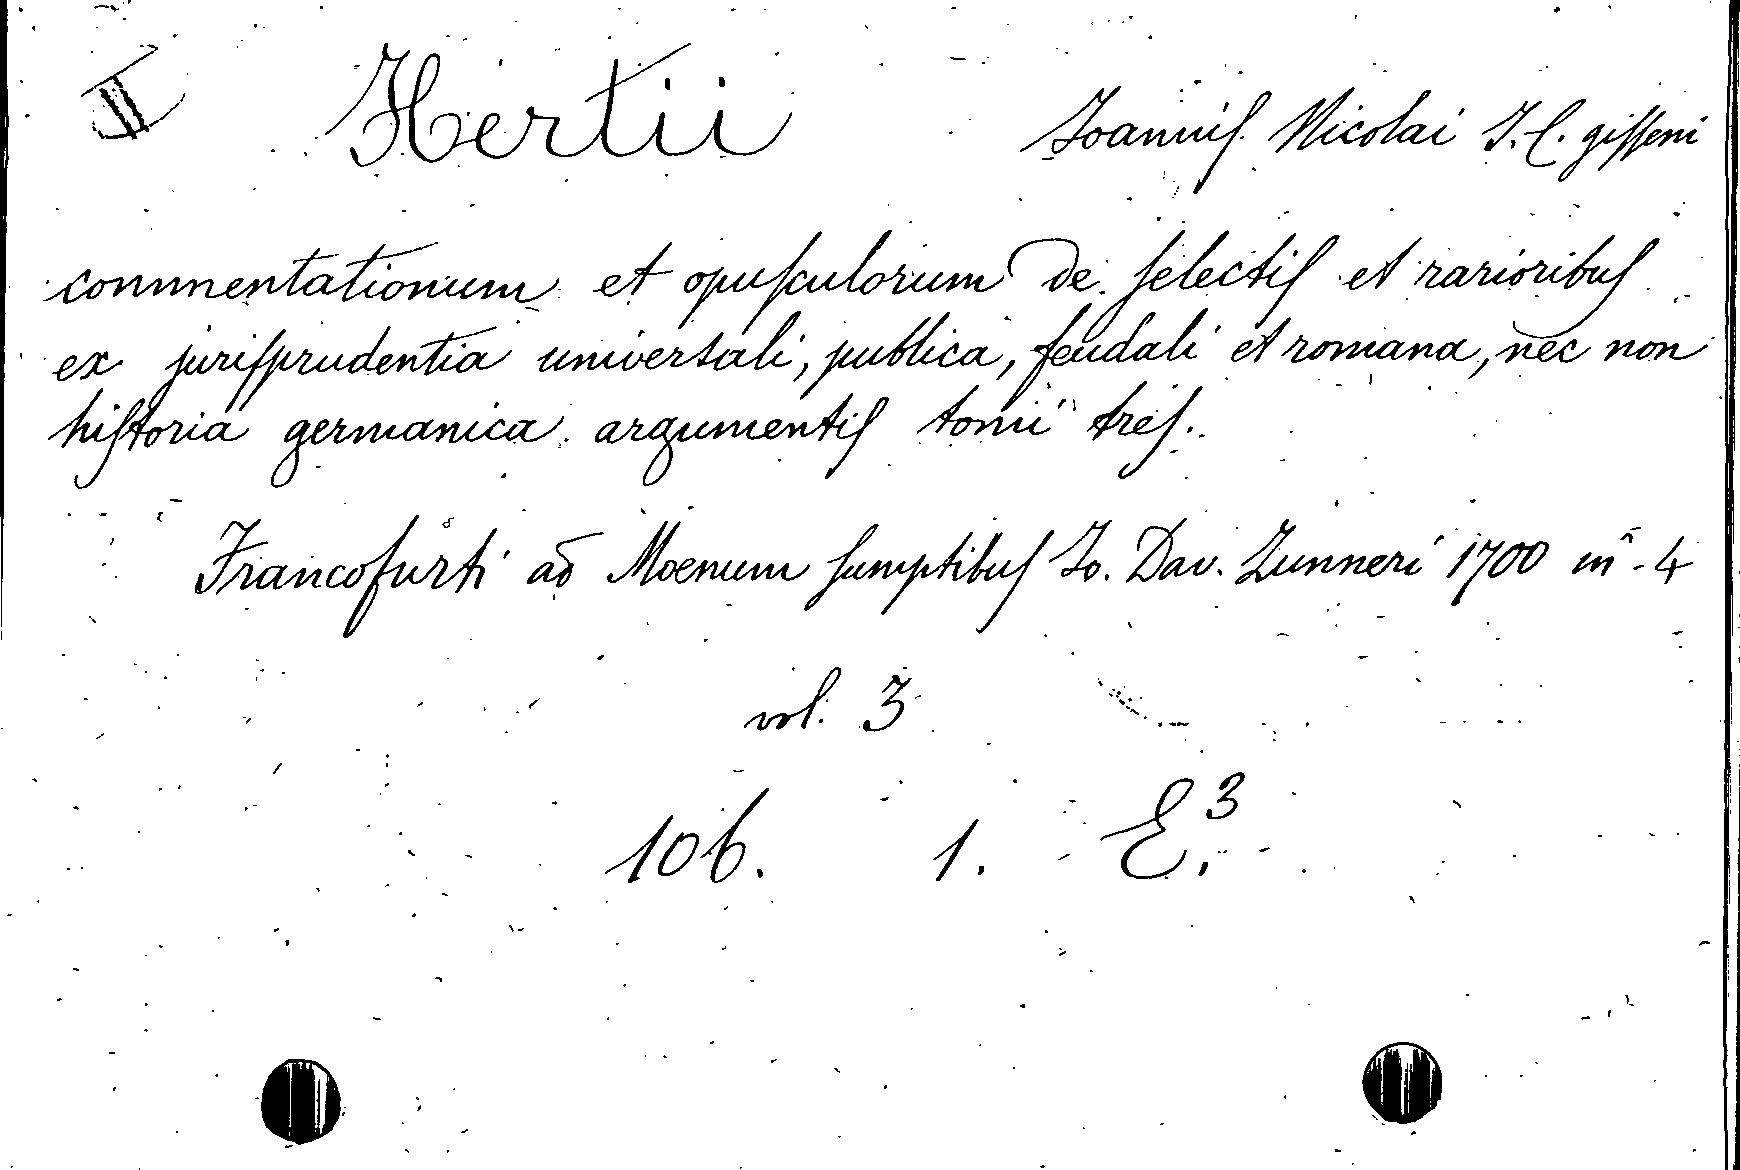 II Hertii Joannis Nicolai J. C. gisseni
commentationum et opusculorum de selectis et rarioribus
ex jurisprudentia universali, publica, feudali et romana, nec non
historia germanica argumentis tomi tres.
Francofurti ad Moenum sumptibus Jo. Dav. Zunneri 1700 in - 4
vol. 3
106. 1. E.³